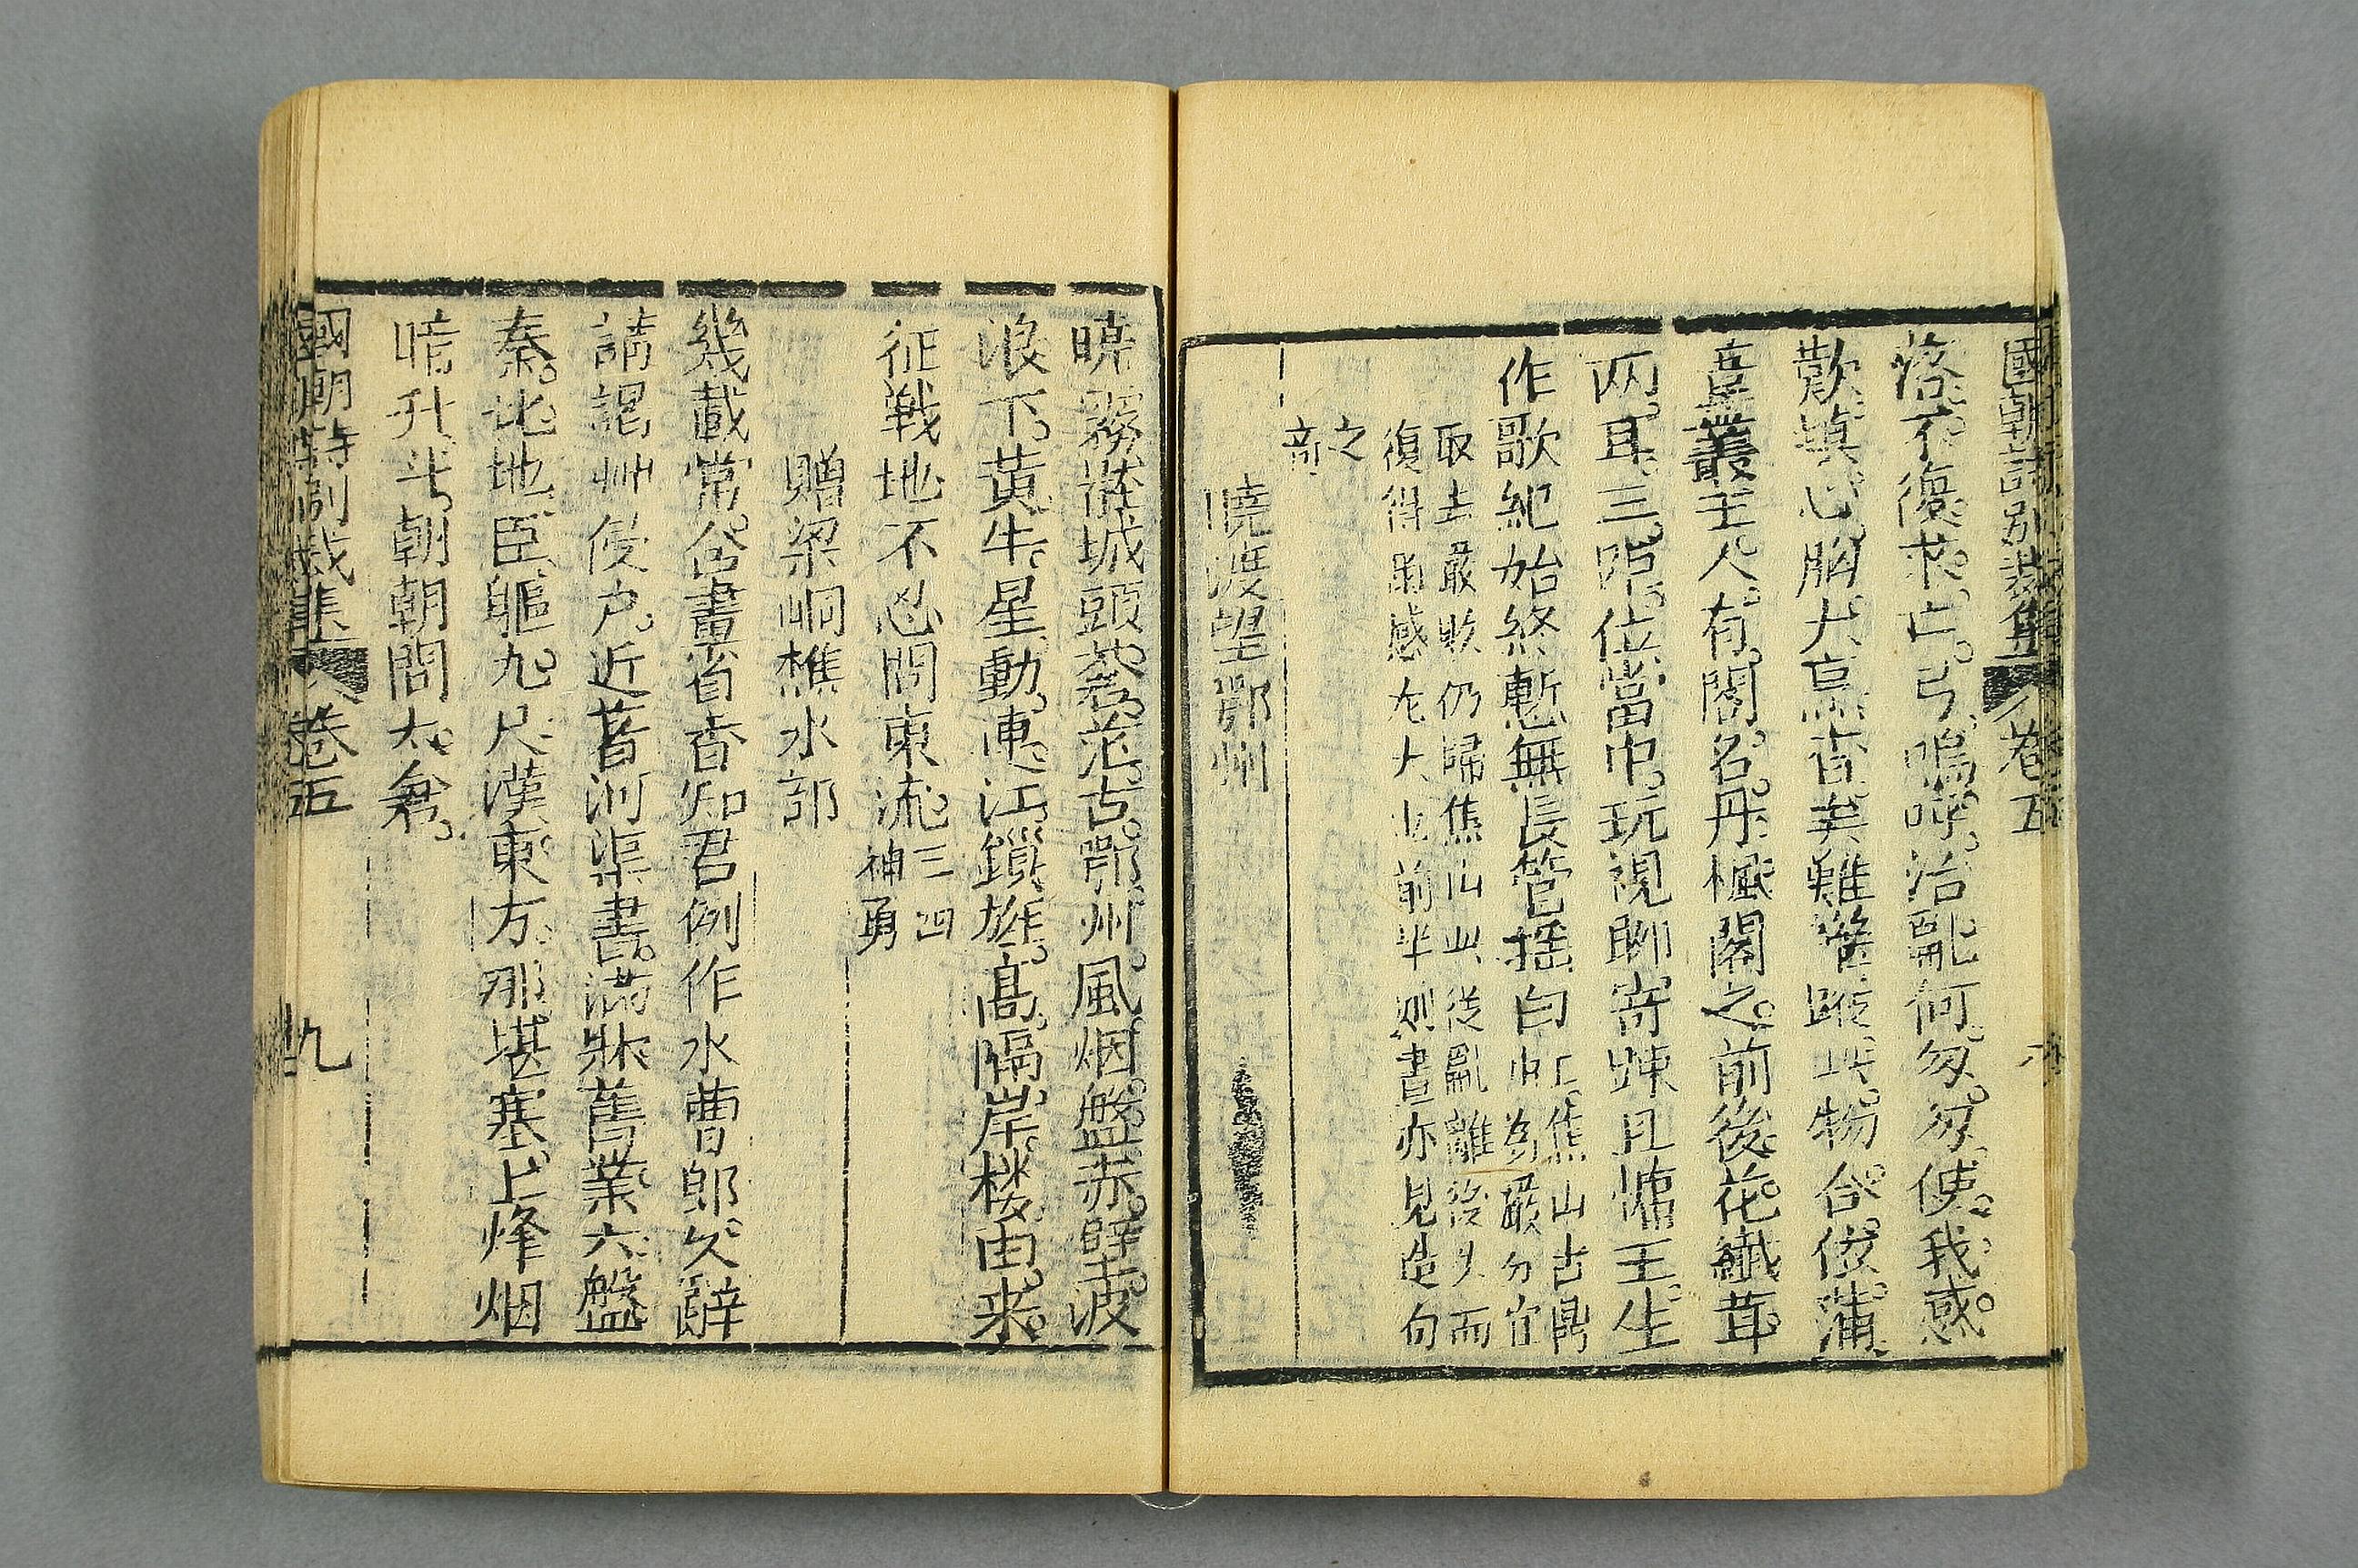 國朝詩別裁集 卷五
落不復求亡弓嗚呼治亂何匆匆使我感
歎填心胸大烹杳矣難攀蹤此物合俊蒲
壹叢主人有閣名丹楓閣之前後花繊茸
兩耳三足位當中玩視聊寄踈且慵王生
作歌紀始終慙無長管揺白虹焦山古鼎為嚴分宜
取去嚴敗仍歸焦山此從亂離後失而
復得用感尢大也前半刻畫亦見造句
之
奇
曉渡望鄂州
曉霧蒼城頭蒼茫古鄂州風烟盤赤壁波
浪下黃牛星動連江鎖旌高隔岸樓由來
征戰地不忍問東流三四神勇
贈梁峒樵水部
幾載常含畫省香知君例作水曹郎久辭
請謁艸侵户近著河渠書滿牀舊業六盤
秦北地臣軀九尺漢東方那堪塞上烽烟
暗升斗朝朝問太倉
國朝詩別裁集 卷五 九